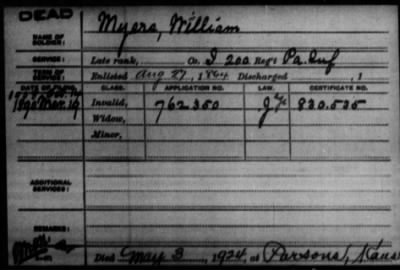 DEAD
NAME OF SOLDIER: Myers, William
SERVICE: Late rank, Co. I 200 Reg't Pa. Inf
TERM OF SERVICE: Enlisted Aug 27, 1864 Discharged , 1
DATE OF FILING. CLASS. APPLICATION NO. LAW. CERTIFICATE NO.
1890 Mar. 19 Invalid, 762350 830.535
Widow,
Minor,
ADDITIONAL SERVICES:
REMARKS:
Died May 3, 1924, at Parsons, Kans